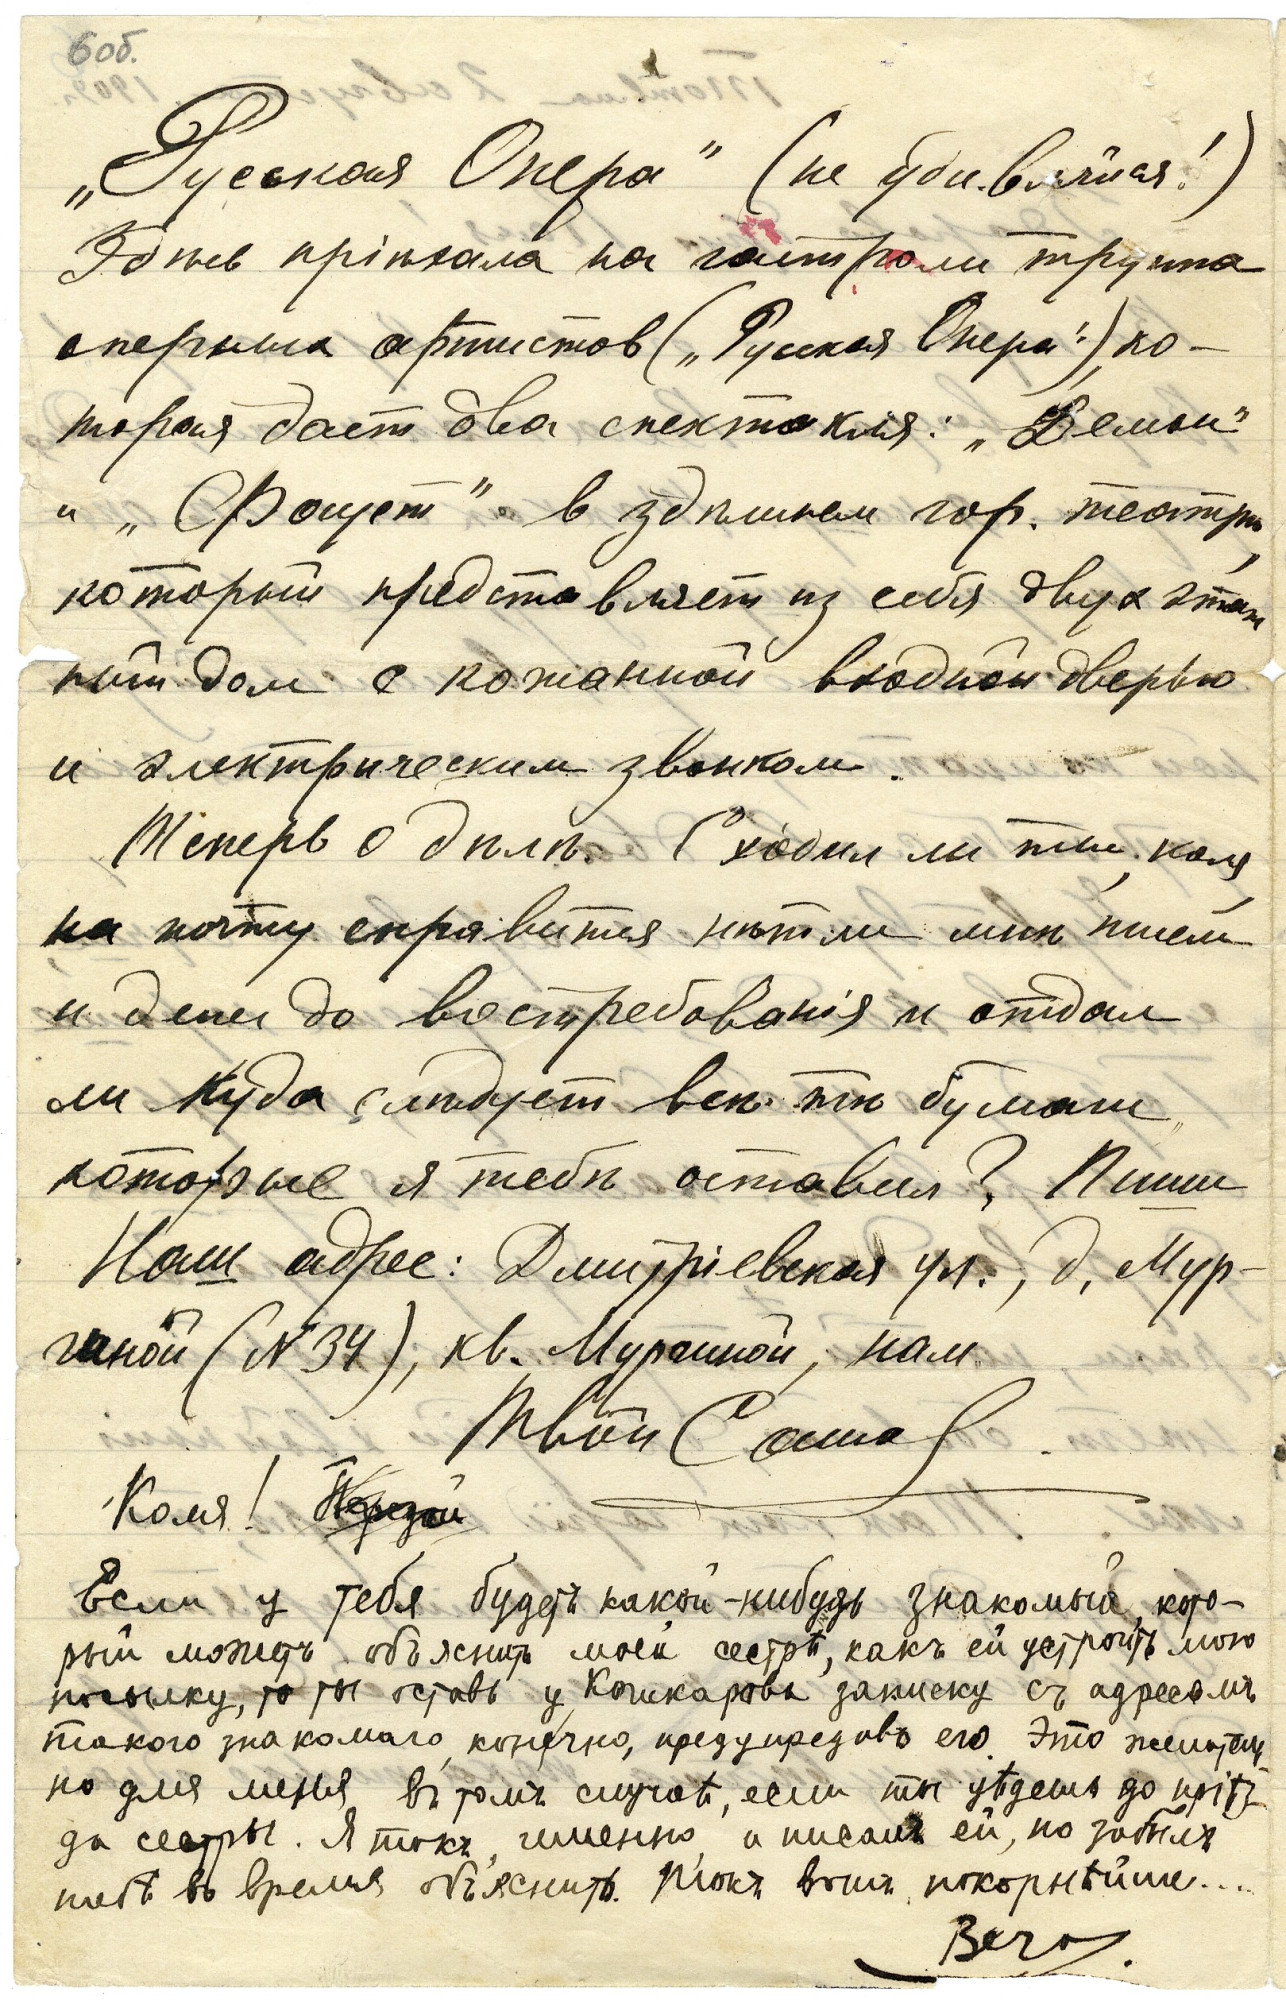 6 об.
„Русская Опера" (не удивляйся!)
Здѣсь пріѣхала на гастроли труппа
оперных артистов („Русская Опера"), ко-
торая дает два спектакля: „Демон"
и „Фауст" в здѣшнем гор. театрѣ,
который представляет из себя двухэтаж
ный дом с кожанной входной дверью
и электрическим звонком.
Теперь о дѣлѣ. Сходил ли ты, Коля,
на почту справится нѣт ли мнѣ писем
и денег до востребованія и отдал
ли куда слѣдует всѣ тѣ бумаги,
которые я тебѣ оставил? Пиши
Наш адрес: Дмитріевская ул., д. Мур-
гиной (N 34), кв. Мургиной, нам.
Твой Саша
Коля!
Если у тебя будетъ какой-нибудь знакомый, кото-
рый можетъ объяснить моей сестрѣ, какъ ей устроить мою
посылку, то ты оставь у Кошкарова записку съ адресомъ
такого знакомаго, конечно, предупредивъ его. Это желатель-
но для меня въ томъ случаѣ, если ты уѣдешь до пріѣз-
да сестры. Я такъ, именно, и писалъ ей, но забылъ
тебѣ во время объяснить. Такъ вотъ, покорнѣйше....